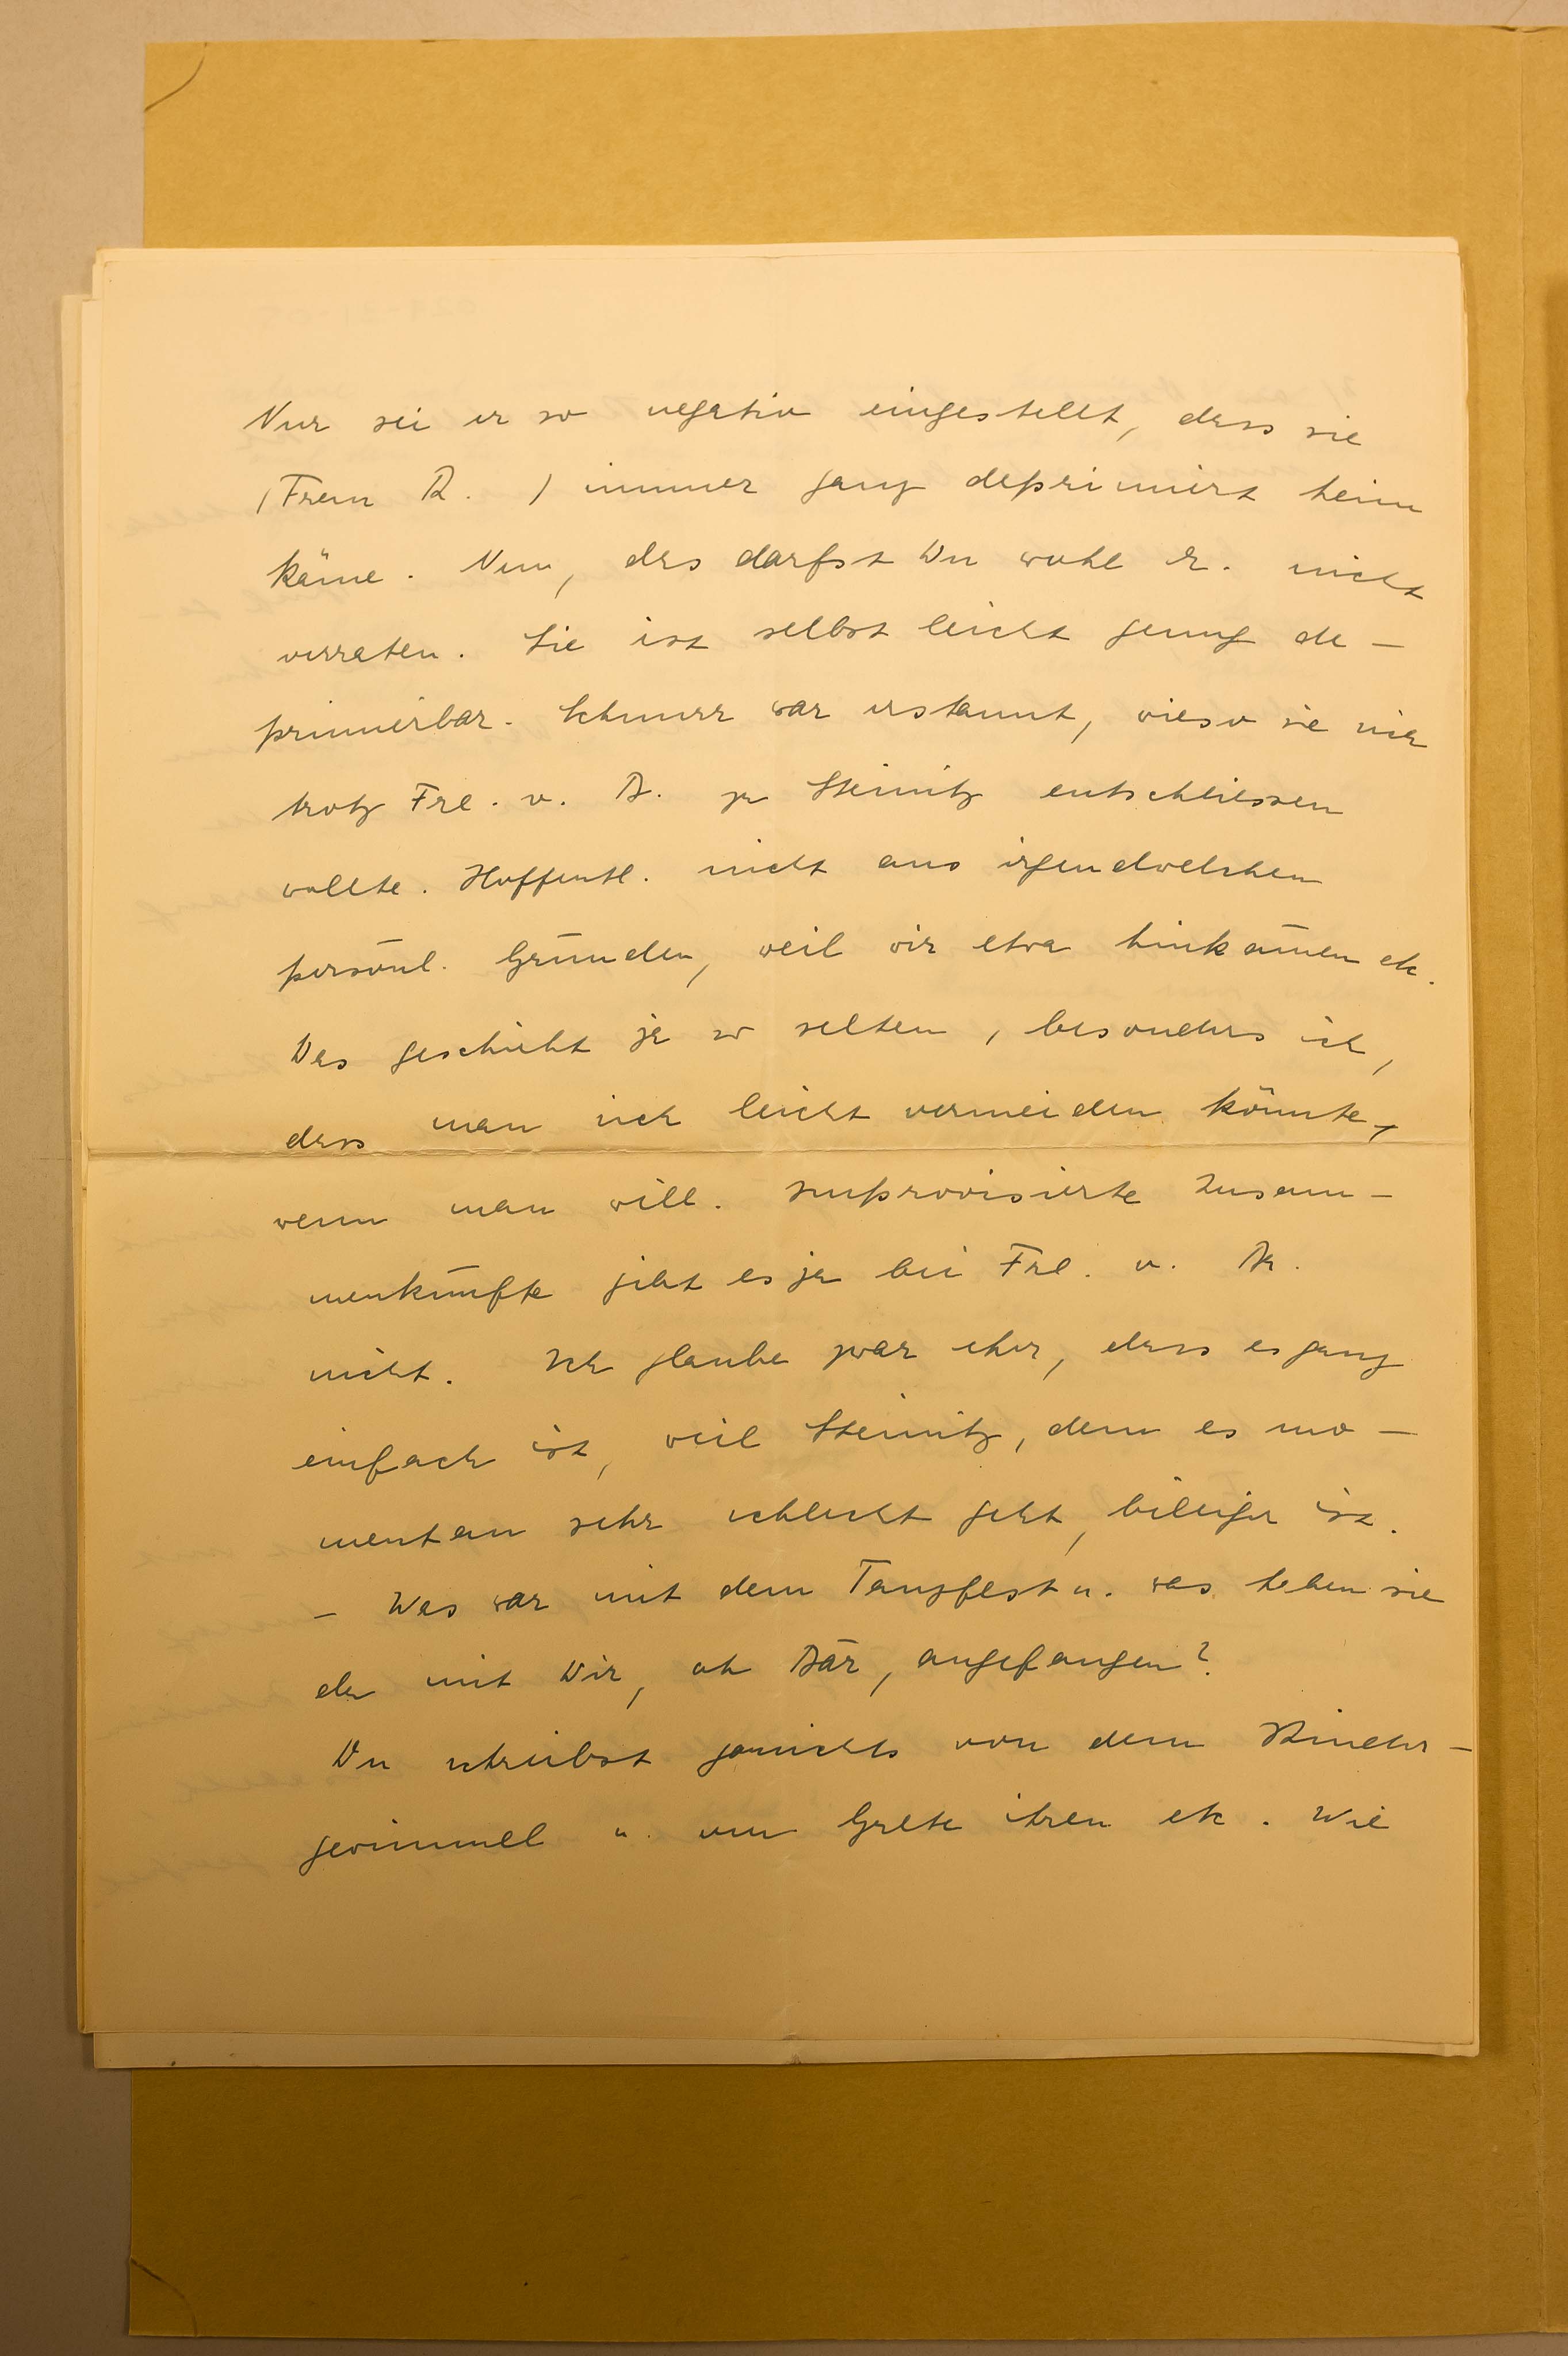 Nur sei er so negativ eingestellt, dass sie
(Frau R.) immer ganz deprimiert heim
käme. Nun, das darfst Du wohl R. nicht
verraten. Sie ist selbst leicht genug de-
primierbar. Schnurr war erstaunt, wieso sie sich
trotz Frl. v. B. zu Steinitz entschliessen
wollte. Hoffentl. nicht aus irgendwelchen
persönl. Gründen, weil wir etwa hinkämen etc.
Das geschieht ja so selten, besonders ich,
dass man sich leicht vermeiden könnte,
wenn man will. Improvisierte Zusam-
menkünfte gibt es ja bei Frl. v. B.
nicht. Ich glaube zwar eher, dass es ganz
einfach ist, weil Steinitz, dem es mo-
mentan sehr schlecht geht, billiger ist.
- Was war mit dem Tanzfest u. was haben sie
da mit Dir, oh Bär, angefangen?
Du schreibst garnichts von dem Kinder-
gewimmel u. von Grete ihren etc. Wie